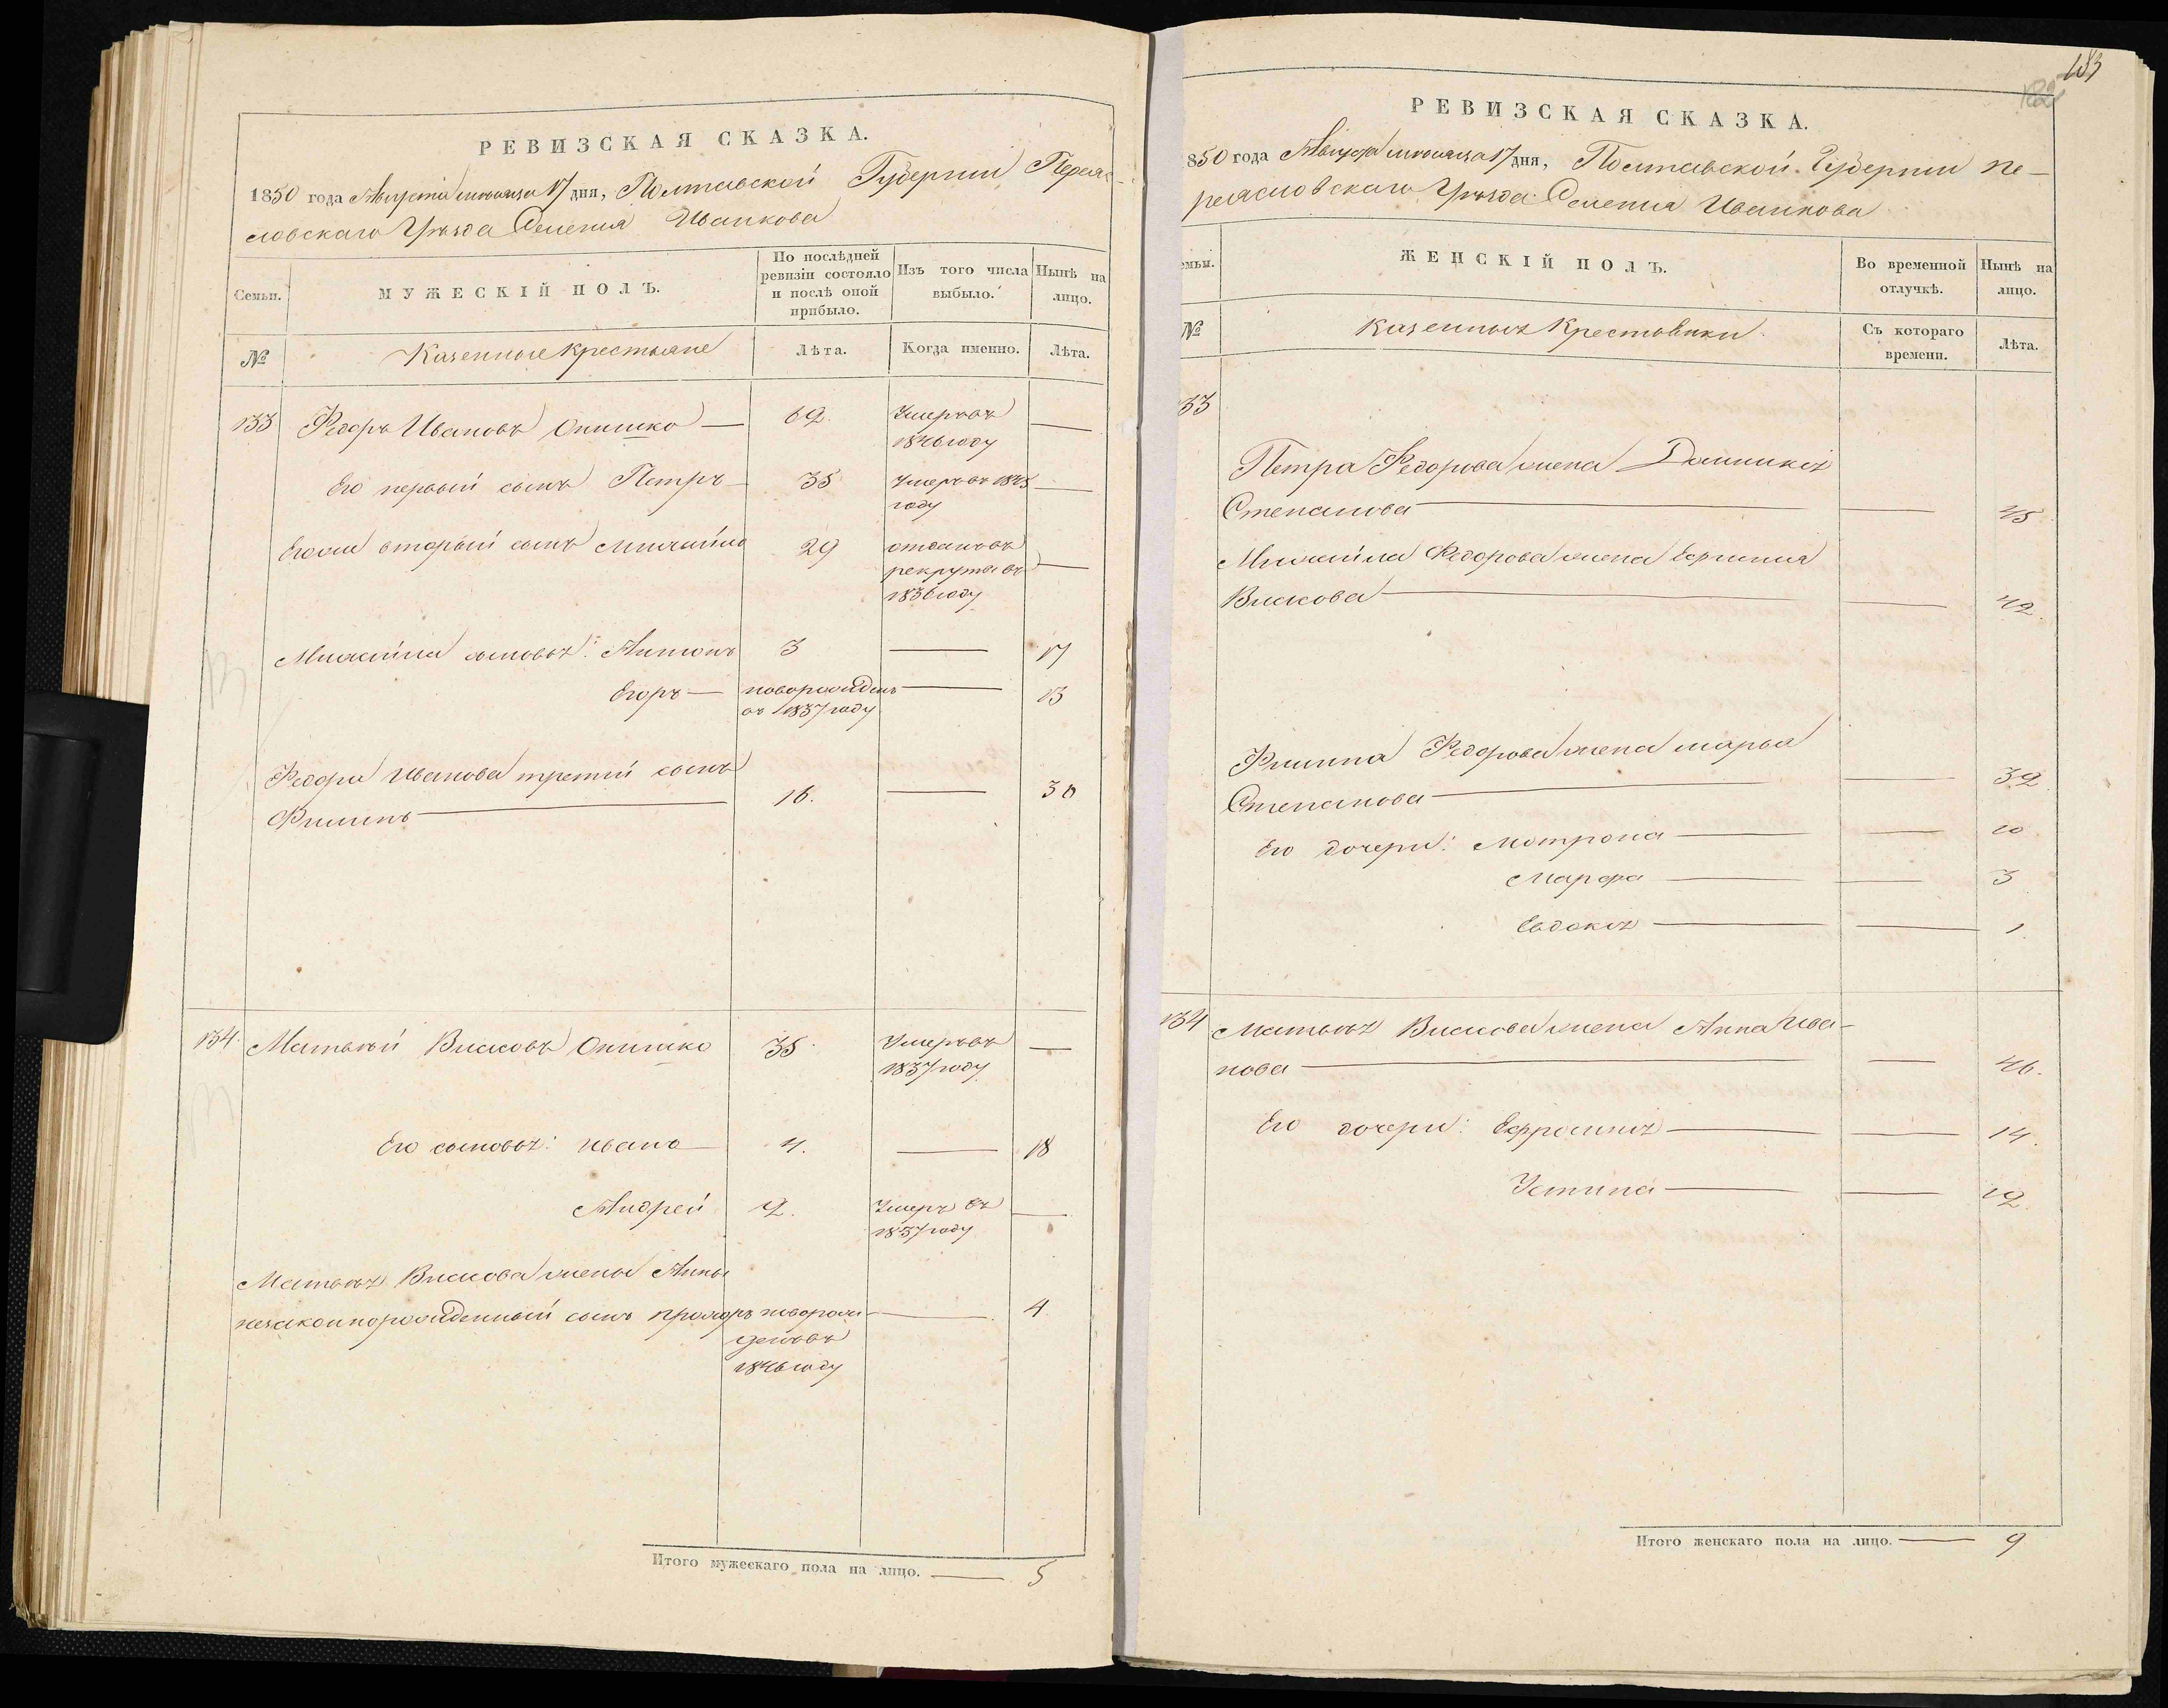 РЕВИЗСКАЯ СКАЗКА.
1850 года Августа месяца 17 дня, Полтавской Губернии Переяс-
ловскаго Уезда Селения Иванкова
Семьи.
МУЖЕСКІЙ ПОЛЪ.
По послѣдней
ревизіи состояло
и послѣ оной
прибыло.
Изъ того числа
выбыло.
Нынѣ на
лицо.
№
Казенные Крестьяне
Лѣта.
Когда именно.
Лѣта.
133 Федоръ Ивановъ Онишко — 62. Умеръ въ —
1846 году
Его первый сынъ Петръ — 35 Умеръ въ 1845 —
году
Его же вторый сынъ Михайло 29 отданъ въ
рекруты въ —
1836 году
Михайла сыновья: Антонъ 3 — 17
Егоръ — новорожденъ — 13
въ 1837 году
Федора Иванова третий сынъ
Филипъ — 16. — 30
134. Матвей Власовъ Онишко 35. Умеръ въ —
1837 году
Его сыновья: Иванъ — 4. — 18
Андрей 2. Умеръ въ —
1837 году
Матвея Власова жены Анны
незаконнорожденный сынъ Прохоръ новорож- — 4.
денъ въ
1846 году
Итого мужескаго пола на лицо. — 5
183
РЕВИЗСКАЯ СКАЗКА.
850 года Августа месяца 17 дня, Полтавской Губернии Пе-
реясловскаго Уезда Селения Иванкова
емьи.
ЖЕНСКІЙ ПОЛЪ.
Во временной
отлучкѣ.
Нынѣ на
лицо.
№
Казенныхъ Крестьянки
Съ котораго
времени.
Лѣта.
33
Петра Федорова жена Домникия
Степанова — — 45
Михайла Федорова жена Евгения
Власова — — 42
Филипа Федорова жена Марья
Степанова — — 32
Его дочери: Мотрона — — 10
Марфа — — 3
Евдокия — — 1
134 Матвея Власова жена Анна Ива-
нова — — 46.
Его дочери: Ефросиния — — 14.
Устина — — 12
Итого женскаго пола на лицо. — 9